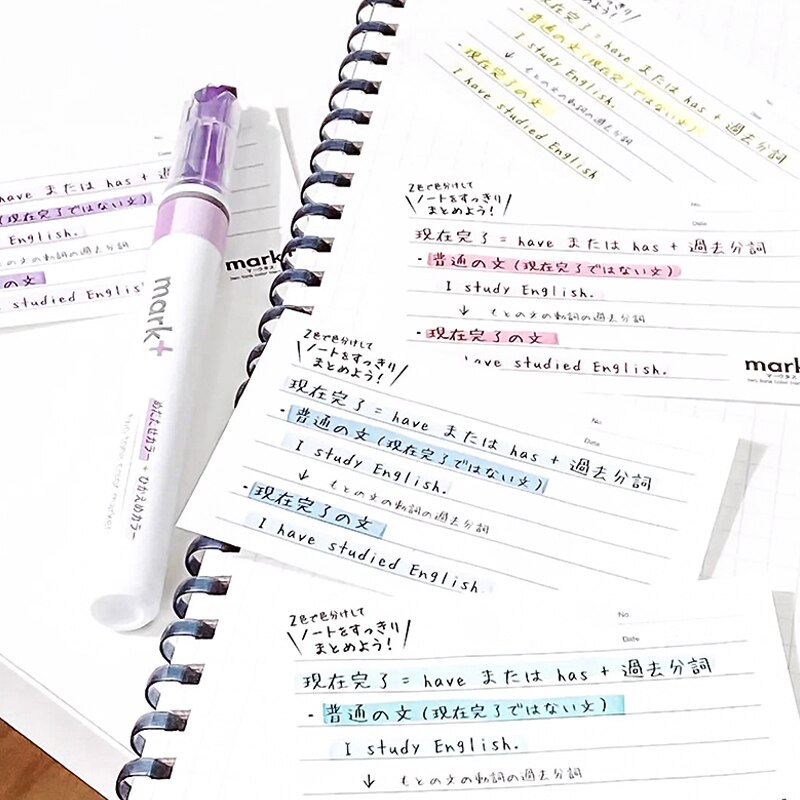 まとめよう!
現在完了 = have または has + 過去分詞
・普通の文(現在完了ではない文)
I study English.
↓ もとの文の動詞の過去分詞
・現在完了の文
I have studied English
have または has + 過
(現在完了ではない文)
English.
の文の動詞の過去分詞
の文
studied English
mark+
マークタス
mark+
あたたせカラー + ひかえめカラー
2色で色分けして
\ノートをすっきり/
まとめよう!
No.
Date
現在完了 = have または has + 過去分詞
・普通の文(現在完了ではない文)
I study English.
↓ もとの文の動詞の過去分詞
・現在完了の文
have studied English.
mark
マークタス
2色で色分けして
\ノートをすっきり/
まとめよう!
No.
Date
現在完了 = have または has + 過去分詞
・普通の文(現在完了ではない文)
I study English.
↓ もとの文の動詞の過去分詞
・現在完了の文
I have studied English.
2色で色分けして
\ノートをすっきり/
まとめよう!
No.
Date
現在完了 = have または has + 過去分詞
・普通の文(現在完了ではない文)
I study English.
↓ もとの文の動詞の過去分詞